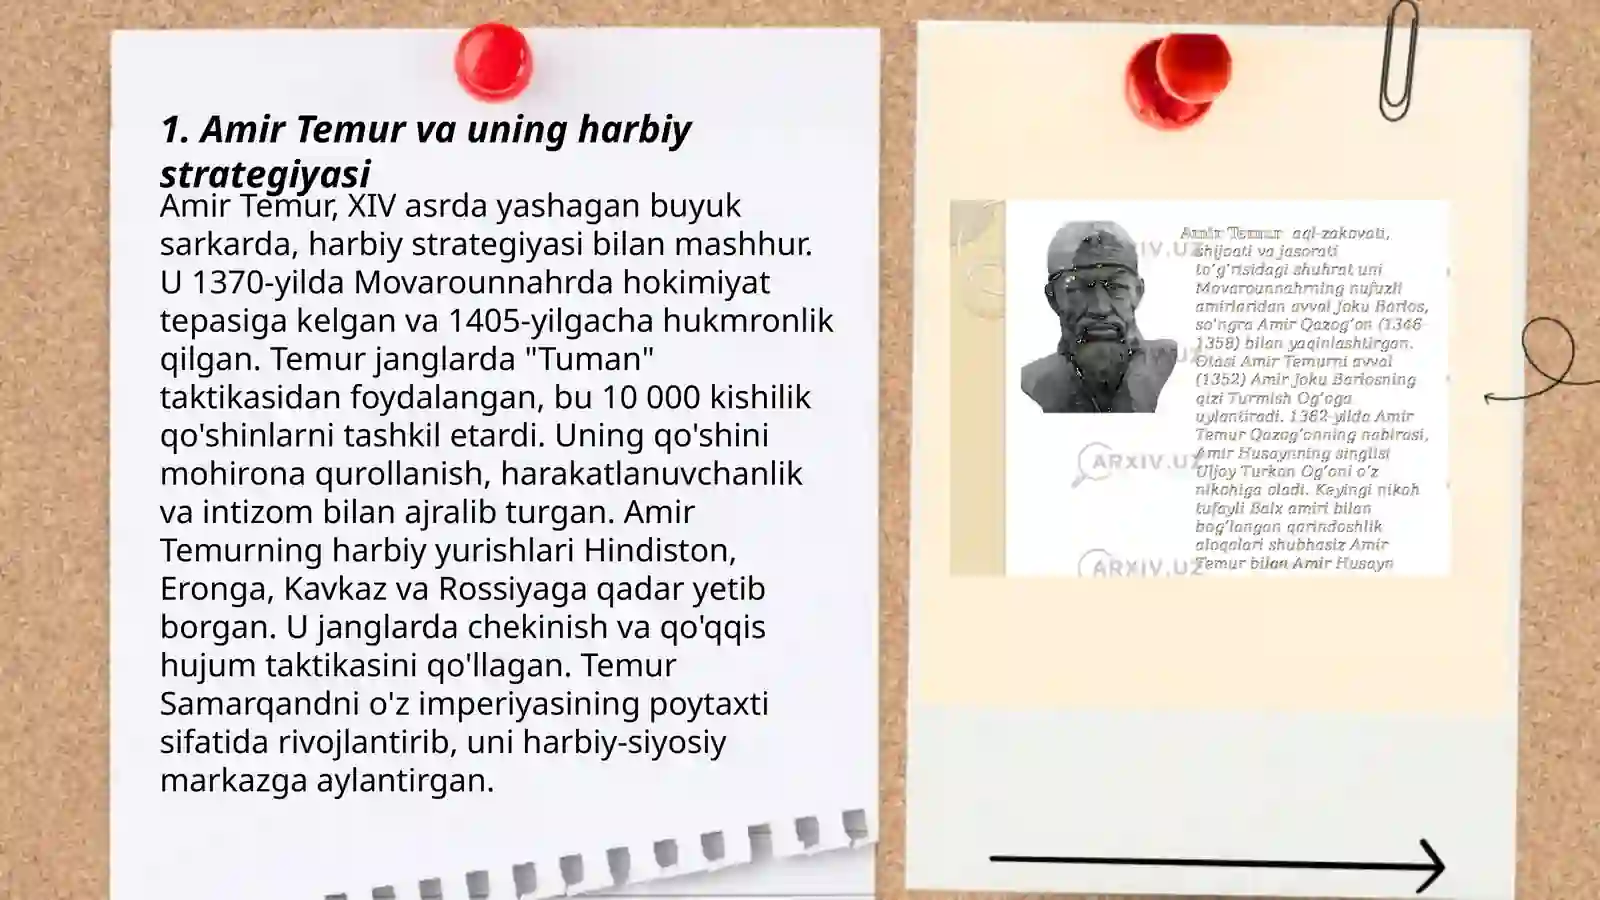 1. Amir Temur va uning harbiy
strategiyasi
Amir Temur, XIV asrda yashagan buyuk
sarkarda, harbiy strategiyasi bilan mashhur.
U 1370-yilda Movarounnahrda hokimiyat
tepasiga kelgan va 1405-yilgacha hukmronlik
qilgan. Temur janglarda "Tuman"
taktikasidan foydalangan, bu 10 000 kishilik
qo'shinlarni tashkil etardi. Uning qo'shini
mohirona qurollanish, harakatlanuvchanlik
va intizom bilan ajralib turgan. Amir
Temurning harbiy yurishlari Hindiston,
Eronga, Kavkaz va Rossiyaga qadar yetib
borgan. U janglarda chekinish va qo'qqis
hujum taktikasini qo'llagan. Temur
Samarqandni o'z imperiyasining poytaxti
sifatida rivojlantirib, uni harbiy-siyosiy
markazga aylantirgan.
Amir Temur aql-zakovati,
shijoati va jasorati
to'g'risidagi shuhrat uni
Movarounnahrning nufuzli
amirlaridan avval Joku Barlos,
so'ngra Amir Qazog'on (1346-
1358) bilan yaqinlashtirgan.
Otasi Amir Temurni avval
(1352) Amir Joku Barlosning
qizi Turmish Og'oga
uylantiradi. 1362-yilda Amir
Temur Qazog'onning nabirasi,
Amir Husaynning singlisi
Uljoy Turkon Og'oni o'z
nikohiga oladi. Keyingi nikoh
tufayli Balx amiri bilan
bog'langan qarindoshlik
aloqalari shubhasiz Amir
Temur bilan Amir Husayn
ARXIV.UZ
ARXIV.UZ